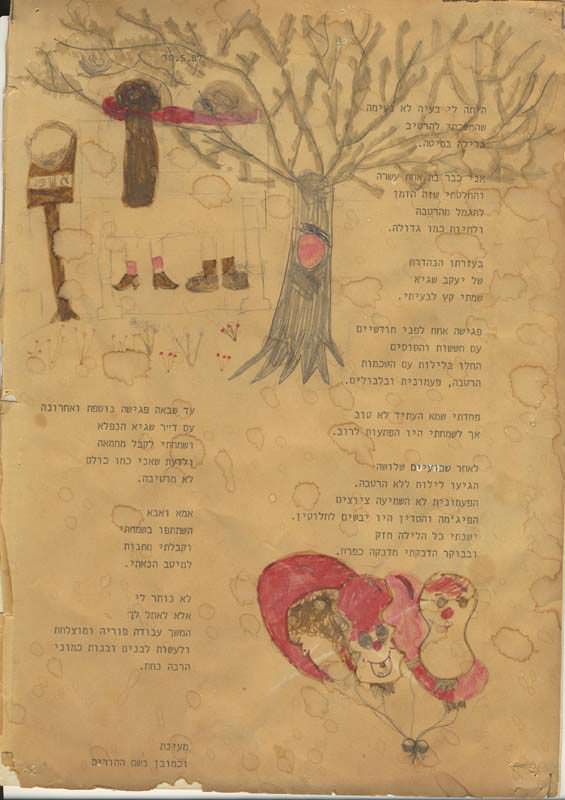 10.5.87
היתה לי בעיה לא נעימה
שהפכתי להרטיב
בלילה במיטה.
אני כבר בת אחת עשרה
והחלטתי שזה הזמן
להגמל מהרטבה
ולחיות כמו גדולה.
בעזרתו הנהדרת
של יעקב שגיא
שמתי קץ לבעיתי.
פגישה אחת לפני חודשיים
עם חששות והסוסים
החלו בלילות עם השכמות
הרטבה, פעמונית ובלבולים.
פחדתי שמא העתיד לא טוב
אך לשמחתי היו הפתעות לרוב.
לאחר שבועיים שלושה
הגיעו לילות ללא הרטבה.
הפעמונית לא השמיעה ציוצים
הפיג'מה והסדין היו יבשים לחלוטין.
ישנתי כל הלילה חזק
ובבוקר הדבקתי מדבקה כפרח.
עד שבאה פגישה נוספת ואחרונה
עם ד"ר שגיא הנפלא
ושמחתי לקבל מחמאה
ולדעת שאני כמו כולם
לא מרטיבה.
אמא ואבא
השתתפו בשמחתי
וקבלתי מתנות
למיטב הנאתי.
לא נותר לי
אלא לאחל לך
המשך עבודה פוריה ומוצלחת
ולעשות לבנים ובנות כמוני
הרבה נחת.
מעינת
וכמובן בשם ההורים